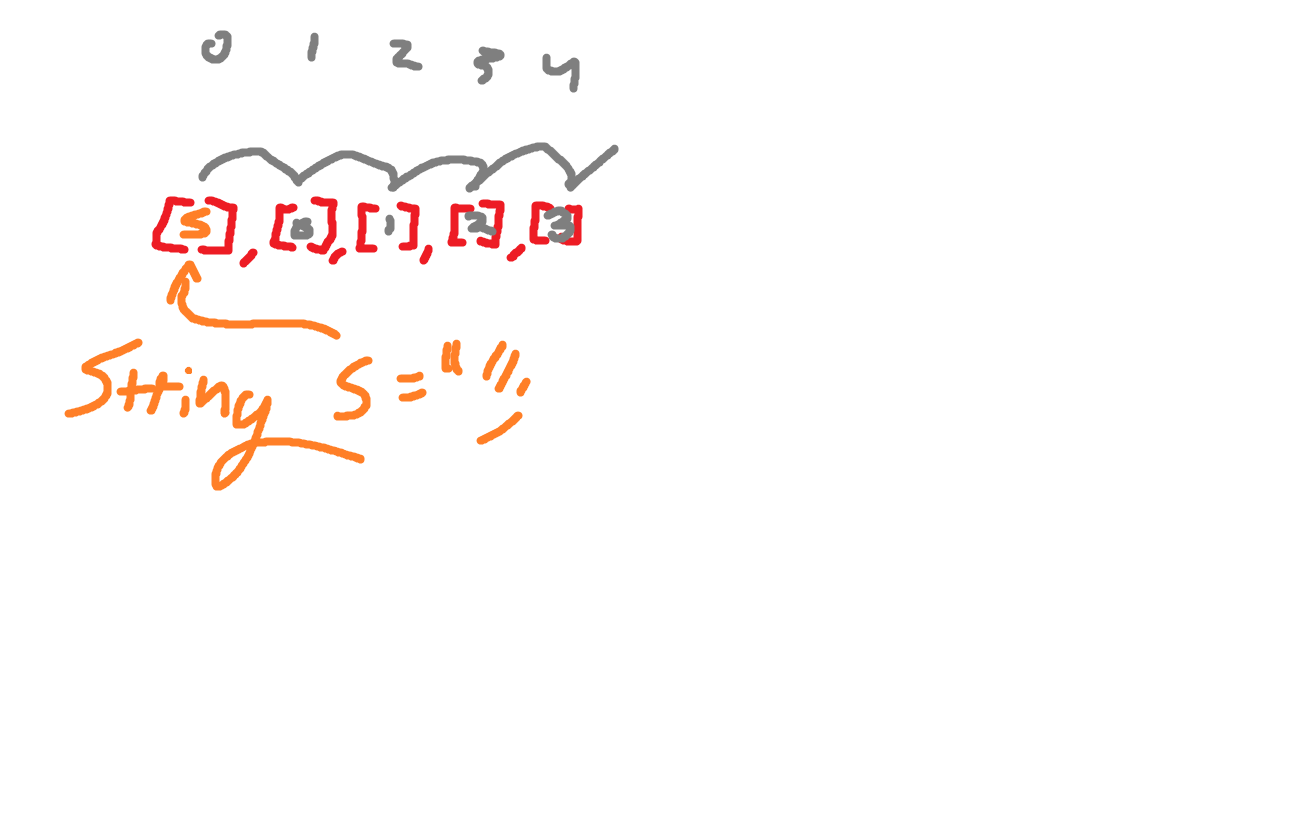 0 1 2 3 4
[S], [0], [1], [2], [3]
String S = "";